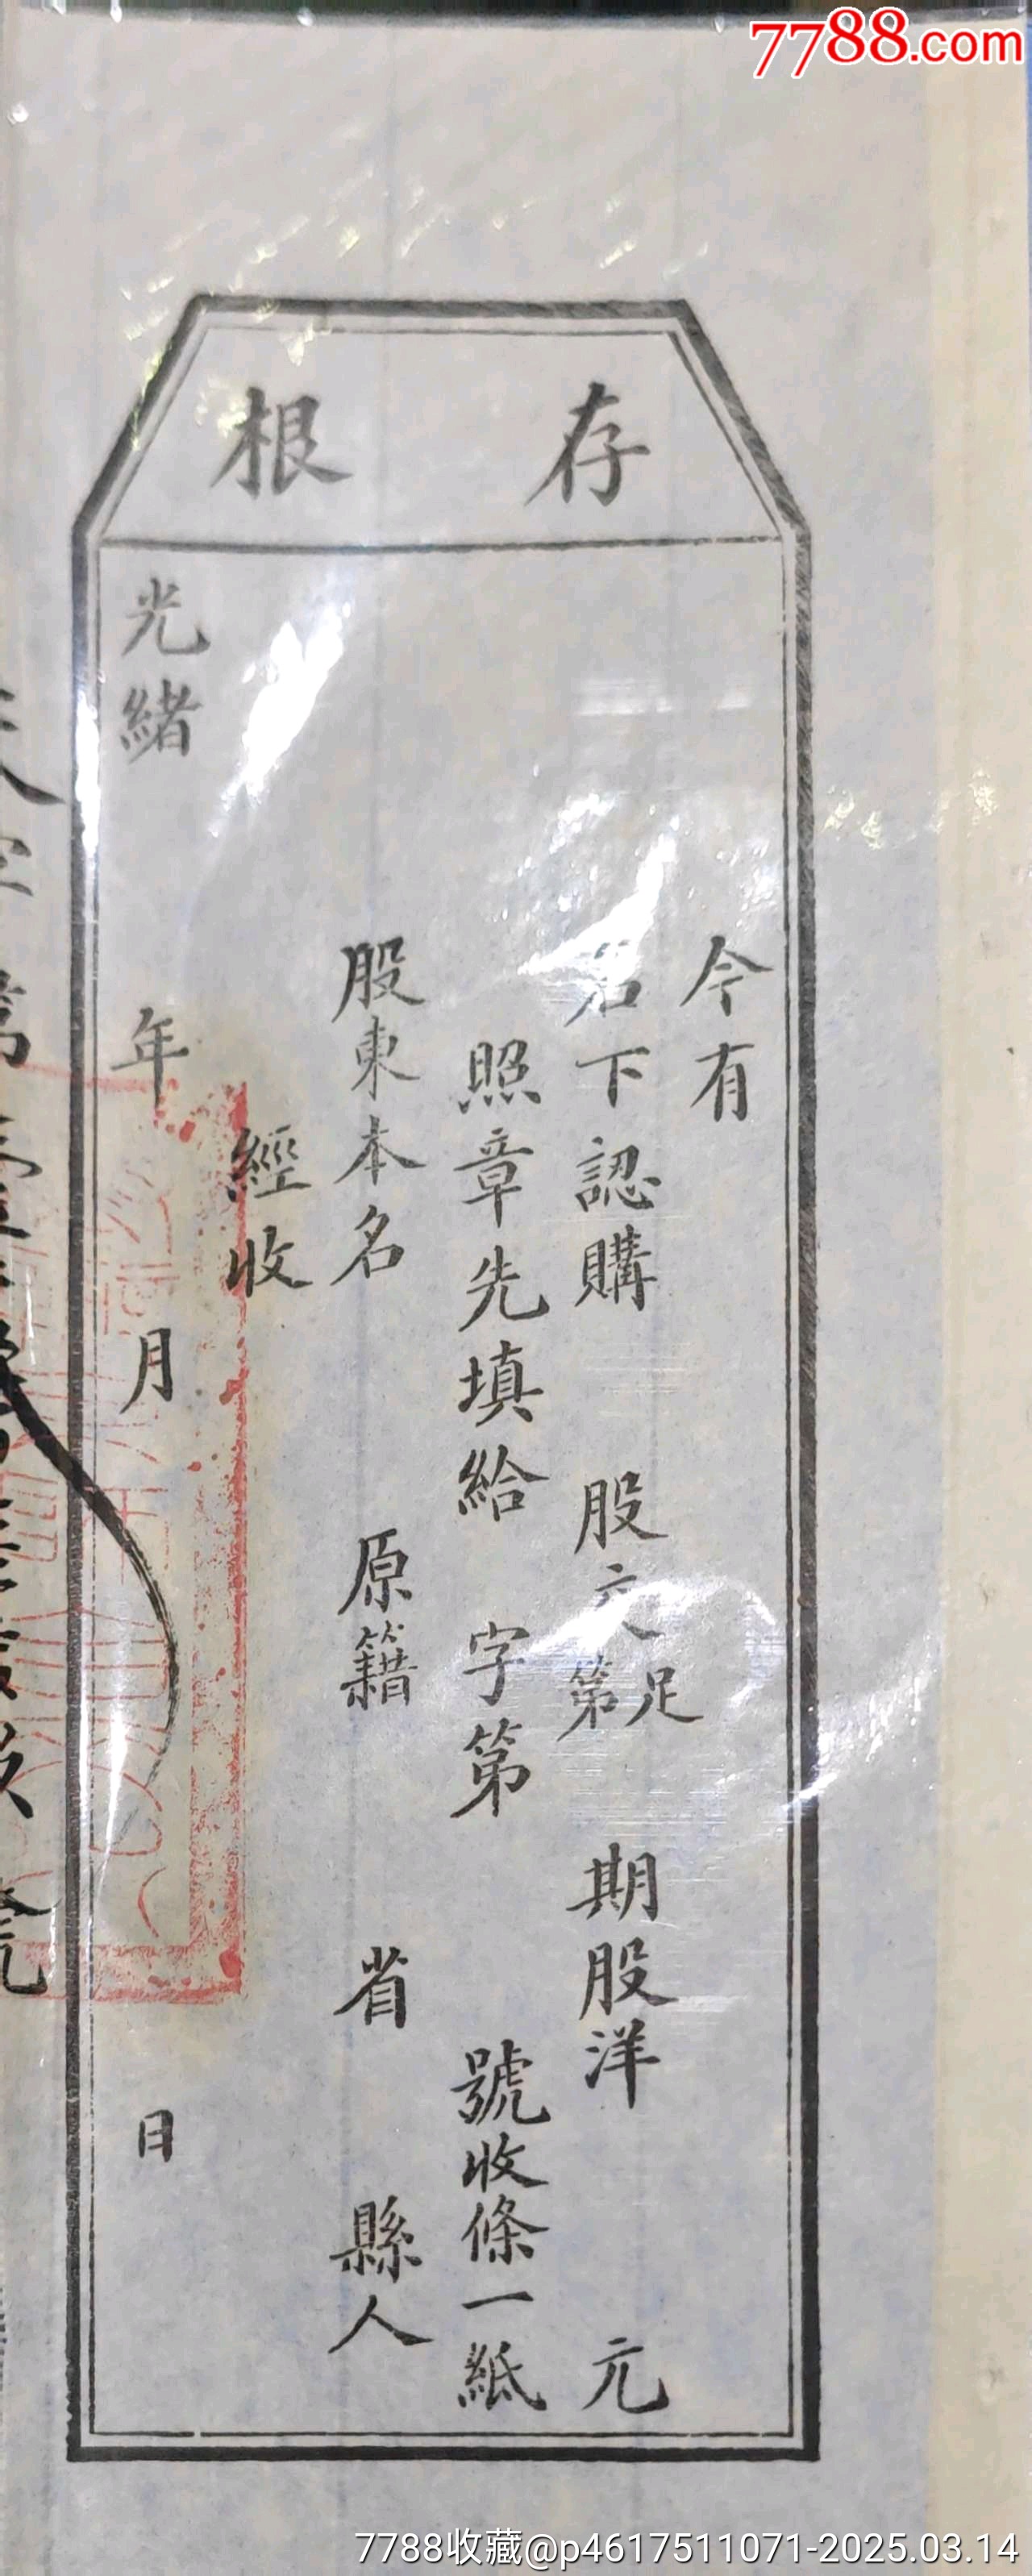 7788.com
存根
今有
名下認購 股交足第 期股洋 元
照章先填給 字第 號收條一紙
股東本名 原籍 省 縣人
經收
光緒 年 月 日
7788收藏@p4617511071-2025.03.14